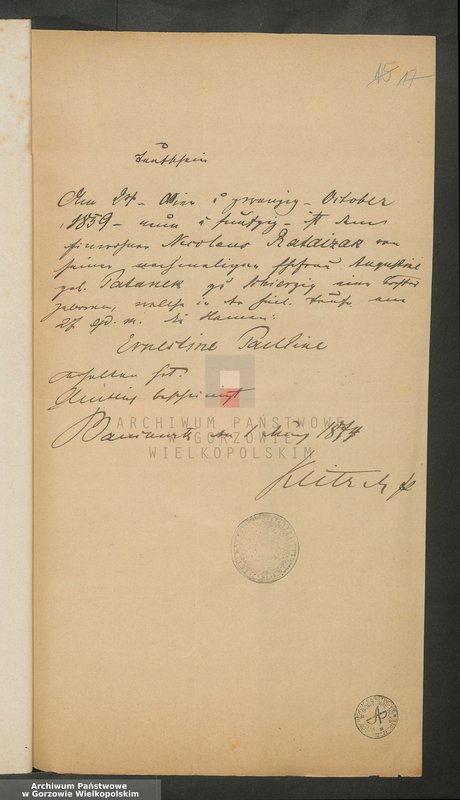 15 17
Taufschein
Am 24 - vier u zwanzig - October
1859 - neun u fünfzig - ist dem
Einwohner Nicolaus Rataizak von
seiner nachmaligen Ehefrau Augustine
geb. Patanek zu Schierzig eine Tochter
geboren, welche in der heil. Taufe am
27 ejd. m. die Namen:
Ernestine Pauline
erhalten hat.
bescheinigt
den 1 März 1874
ARCHIWUM PAŃSTWOWE
W GORZOWIE
WIELKOPOLSKIM
Archiwum Państwowe
w Gorzowie Wielkopolskim